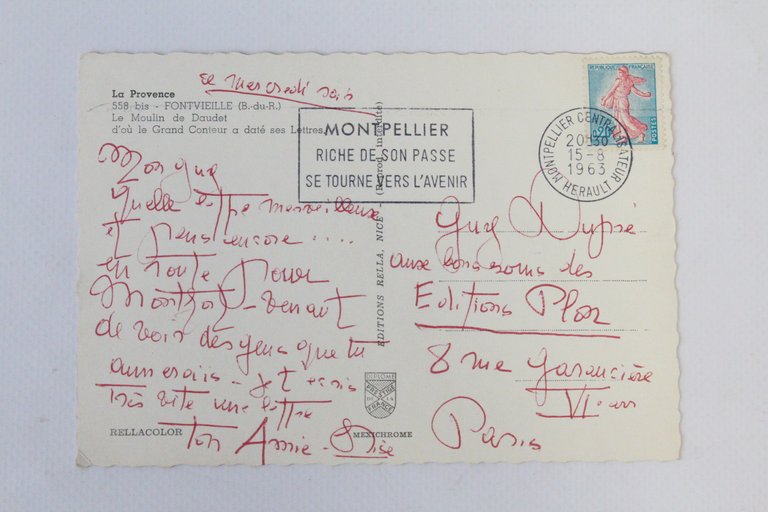 La Provence
558 bis - FONTVIEILLE (B.-du-R.)
Le Moulin de Daudet
d'où le Grand Conteur a daté ses Lettres
ce mercredi soir
MONTPELLIER
RICHE DE SON PASSE
SE TOURNE VERS L'AVENIR
REPUBLIQUE FRANÇAISE
0,20
POSTES
MONTPELLIER CENTRALISATEUR
20 30
15-8
1963
HERAULT
Mon Guy
quelle lettre merveilleuse
et pens encore ....
en route pour
Montfort - venant
de voir des gens que tu
aimerais - Je t'écris
très vite une lettre
ton Amie -
EDITIONS RELLA, NICE - (Reproct. interdite)
Guy Dupré
aux bons soins des
Editions Plon
8 rue Garancière
VIe arr
Paris
DIPLOME
PRESTIGE
DE LA
FRANCE
RELLACOLOR
MEXICHROME